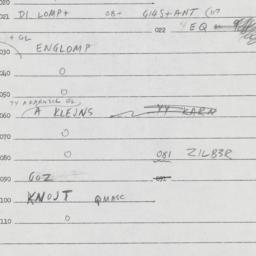 020
021 DI LOMP+ 08+ GIGS+ANT (07
022 EQ
+ GL
030 ENGLOMP
040 0
050 0
TY A KARNZEL GL
060 A KLEJNS TY KARN
070 0
080 0 081 ZILB3R
090 GOZ 091
100 KNOJT QMASC
110 0